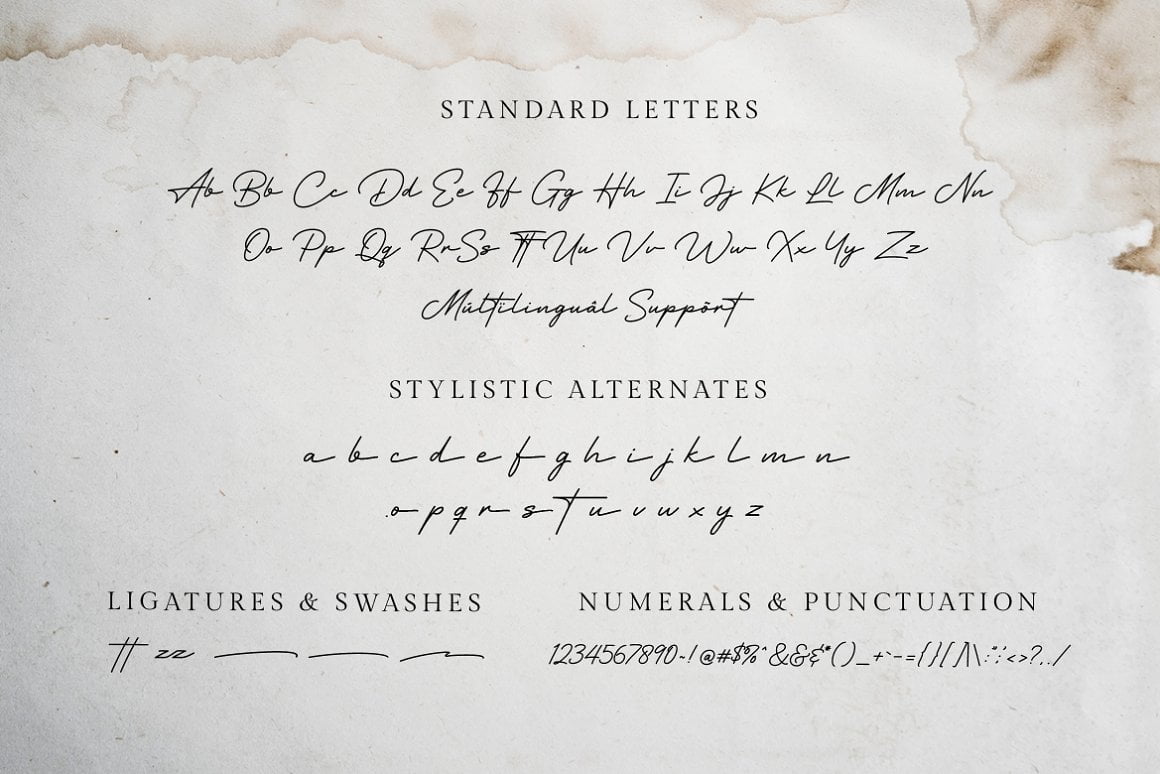 STANDARD LETTERS
Aa Bb Cc Dd Ee Ff Gg Hh Ii Jj Kk Ll Mm Nn
Oo Pp Qq Rr Ss Tt Uu Vv Ww Xx Yy Zz
Múltïlinguâl Suppõrt
STYLISTIC ALTERNATES
a b c d e f g h i j k l m n
o p q r s t u v w x y z
LIGATURES & SWASHES
tt zz
NUMERALS & PUNCTUATION
1234567890~!@#$%^&